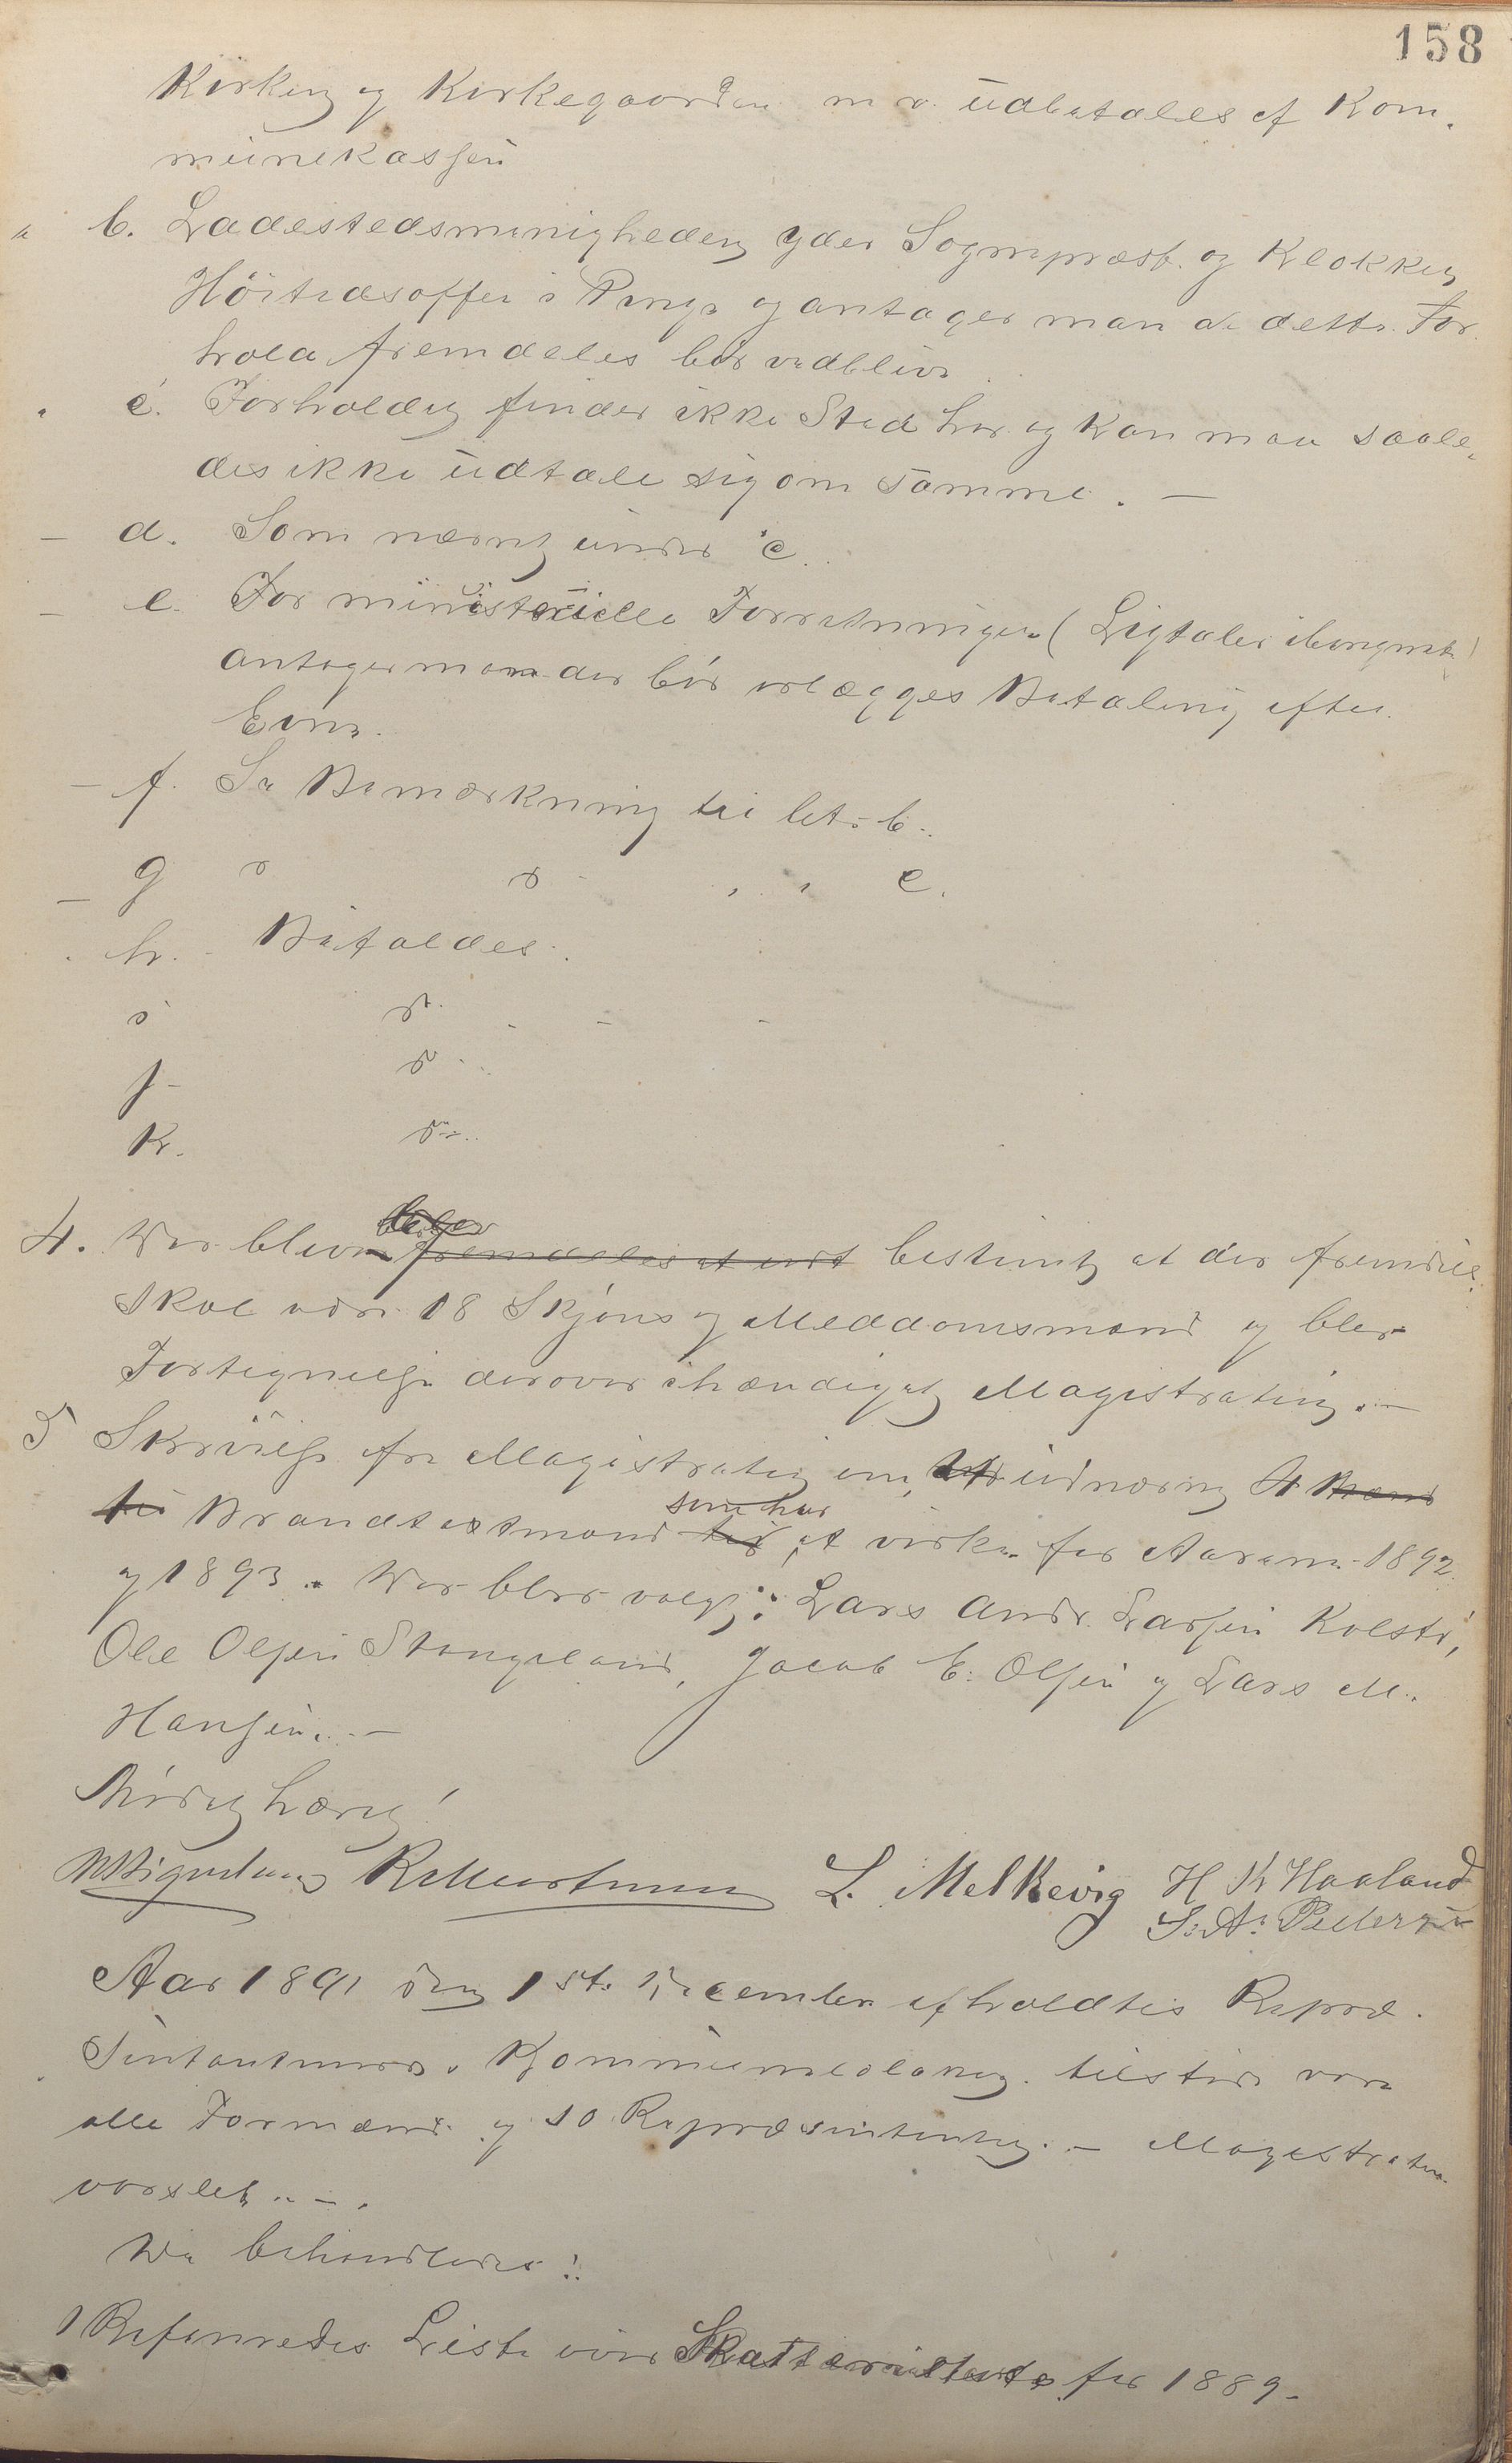 158
Kirken og Kirkegaarden m v. udbetales af Kom-
munekassen
" b. Ladestedsmenigheden yder Sogneprest og Klokker
Höitidsoffer i Penge og antager man at dette For-
hold fremdeles bör vedblive.
" c. Forholdet finder ikke Sted her og kan man saale-
des ikke udtale sig om samme. —
— d. Som nævnt under c.
— e. For ministerielle Forretninger (Ligtaler iberegnet)
antager man der bör erlægges Betaling efter
Evne.
— f. Se Bemærkning til let. b.
— g " " " " c.
" h. Bifaldes.
i do
j do
k. do
4. Der blev fremdeles at bestemt at der fremdeles
skal være 18 Skjöns og Meddomsmænd og blev
Fortegnelse derover ihændiget Magistraten. —
5 Skrivelse fra Magistraten om, at udnævne 4 Mænd
til Brandtaxtmænd som har at virke for Aarene 1892
og 1893. Der blev valgt: Lars Andr. Larsen Kolstø,
Ole Olsen Stangeland, Jacob E. Olsen og Lars M.
Hansen. —
Mödet hævet!
L. Melkevig H K Haaland
S. A. Pedersen
Aar 1891 den 1ste December afholdtes Repræ-
sentantmöde i Kommunelokalet. tilstede vare
alle Formænd og 10 Repræsentanter. — Magistraten
varslet. —
De behandledes:
1 Refereredes Liste over Skatterestante for 1889.